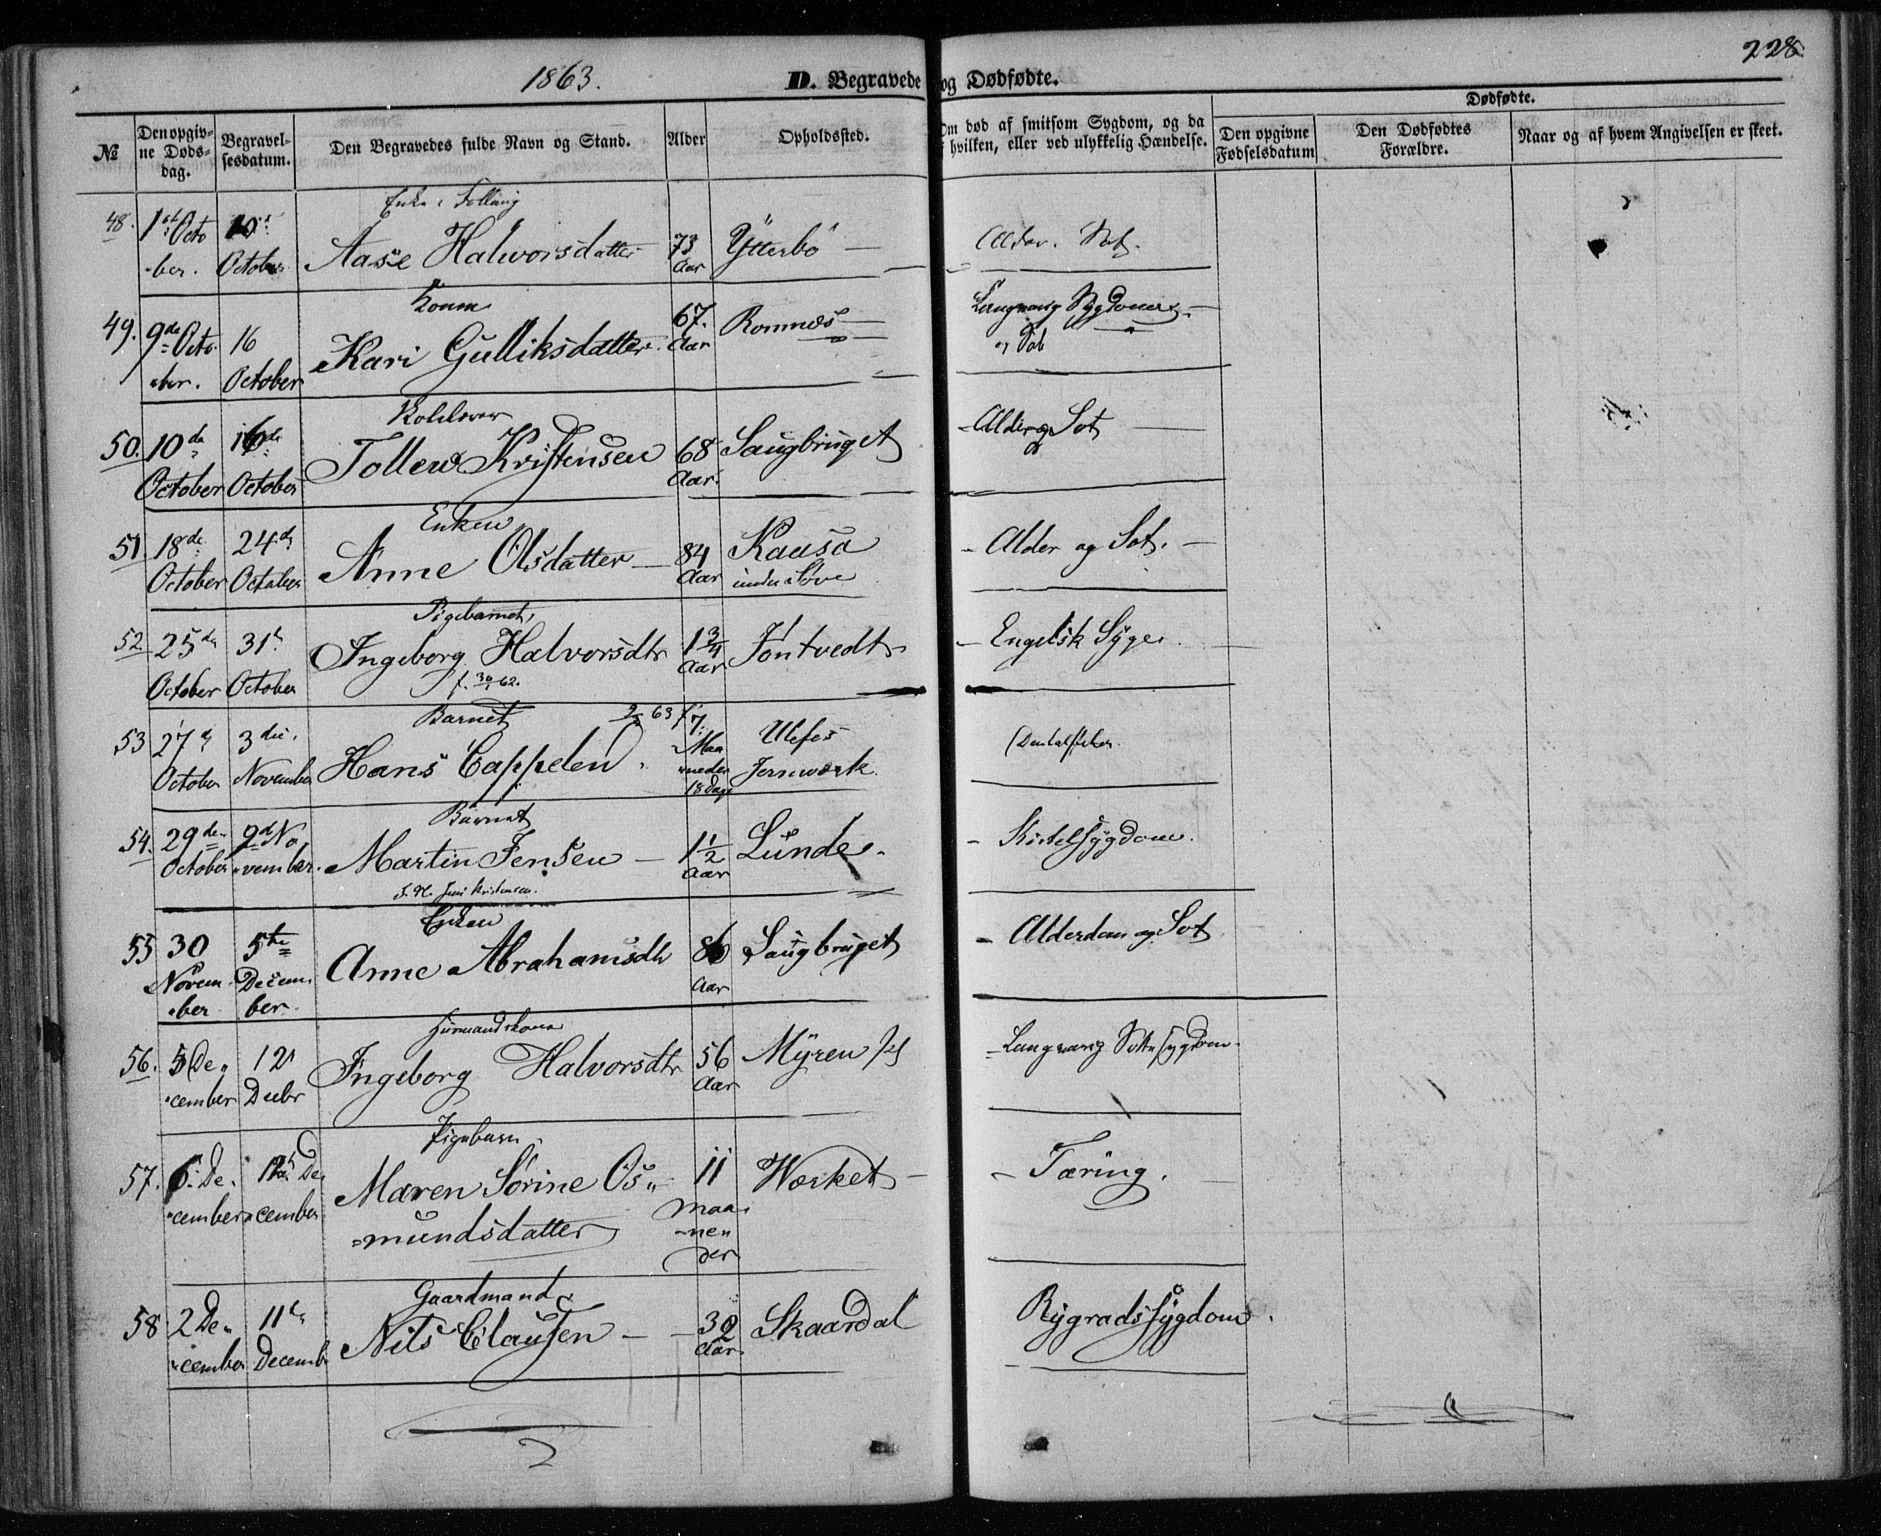 228
1863.
D. Begravede og Dødfødte.
№
Den opgivne Døds-dag.
Begravelsesdatum.
Den Begravedes fulde Navn og Stand.
Alder
Opholdssted.
Om død af smitsom Sygdom, og da
hvilken, eller ved ulykkelig Hændelse.
Dødfødte.
Den opgivne Fødselsdatum
Den Dødfødtes Forældre.
Naar og af hvem Angivelsen er skeet.
48. 1st Octo-ber. October Aase Halvorsdatter 73 Aar Ytterbö Alder. Sot.
Konen
49. 9de Octo-ber. 16 October Kari Gulliksdatter 67. Aar Romnæs Langvarig Sygdom
50. 10de October 16de October Tollew Kristensen 68 Aar Saugbruget Alder og Sot
Enken
51. 18de October 24de October Anne Olsdatter 84 Aar Kaasa under Søve Alder og Sot.
Pigebarnet
52 25de October 31te October Ingeborg Halvorsdtr 1 3/4 Aar Jöntvedt Engelsk Syge
f. 30/1 62.
Barnet
53 27de October 3die November Hans Cappelen 7. Maaneder 18 Dage Ulefos Jernværk.
Barnet
54. 29de October 9de November. Martin Jensen 1 1/2 Aar Lunde Kirtelsygdom.
Enken
55 30 November 5te December. Anne Abrahamsdtr 86 Aar Saugbruget Alderdom og Sot
Huusmandskone
56. 5 December 12 Decbr Ingeborg Halvorsdtr 56 Aar Myren Langvarig
Pigebarn
57. 6. December 12 December Maren Sörine Os-mundsdatter 11 maaneder Værket Tæring.
Gaardmand
58 2 December 11te December Nils Clausen 32 Aar Skaardal Rygradssygdom.